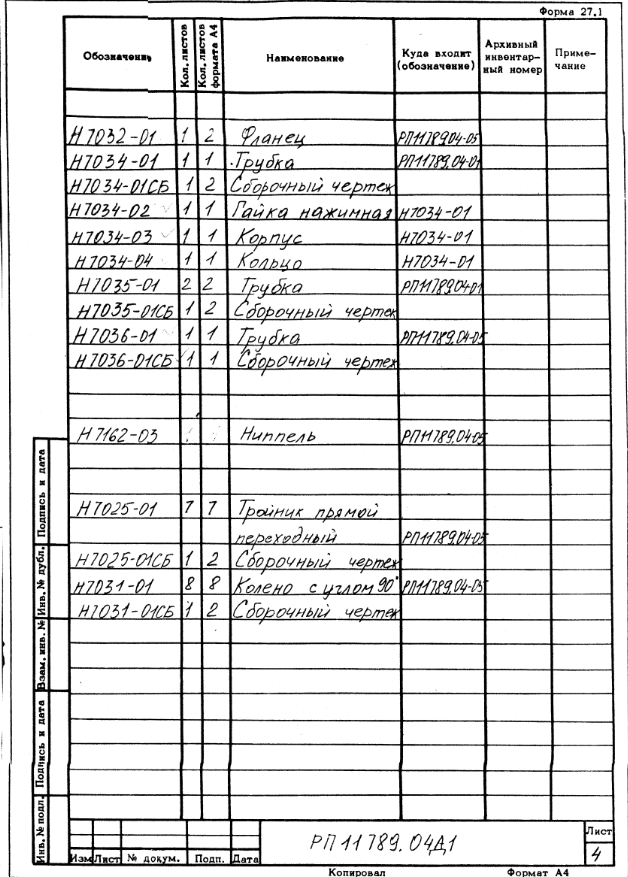 Форма 27.1
Обозначение Кол. листов Кол. листов формата А4 Наименование Куда входит (обозначение) Архивный инвентар-ный номер Приме-чание
Н7032-01 1 2 Фланец РП11789.04-05
Н7034-01 1 1 Трубка РП11789.04-01
Н7034-01СБ 1 2 Сборочный чертеж
Н7034-02 1 1 Гайка нажимная Н7034-01
Н7034-03 1 1 Корпус Н7034-01
Н7034-04 1 1 Кольцо Н7034-01
Н7035-01 2 2 Трубка РП11789.04-01
Н7035-01СБ 1 2 Сборочный чертеж
Н7036-01 1 1 Трубка РП11789.04-05
Н7036-01СБ 1 1 Сборочный чертеж
Н7162-03 Ниппель РП11789.04-05
Н7025-01 7 7 Тройник прямой
переходный РП11789.04-05
Н7025-01СБ 1 2 Сборочный чертеж
Н7031-01 8 8 Колено с углом 90° РП11789.04-05
Н7031-01СБ 1 2 Сборочный чертеж
Подпись и дата
Инв. № дубл.
Взам. инв. №
Подпись и дата
Инв. № подл.
Изм Лист № докум. Подп. Дата
РП 11789.04Д1
Лист
4
Копировал Формат А4